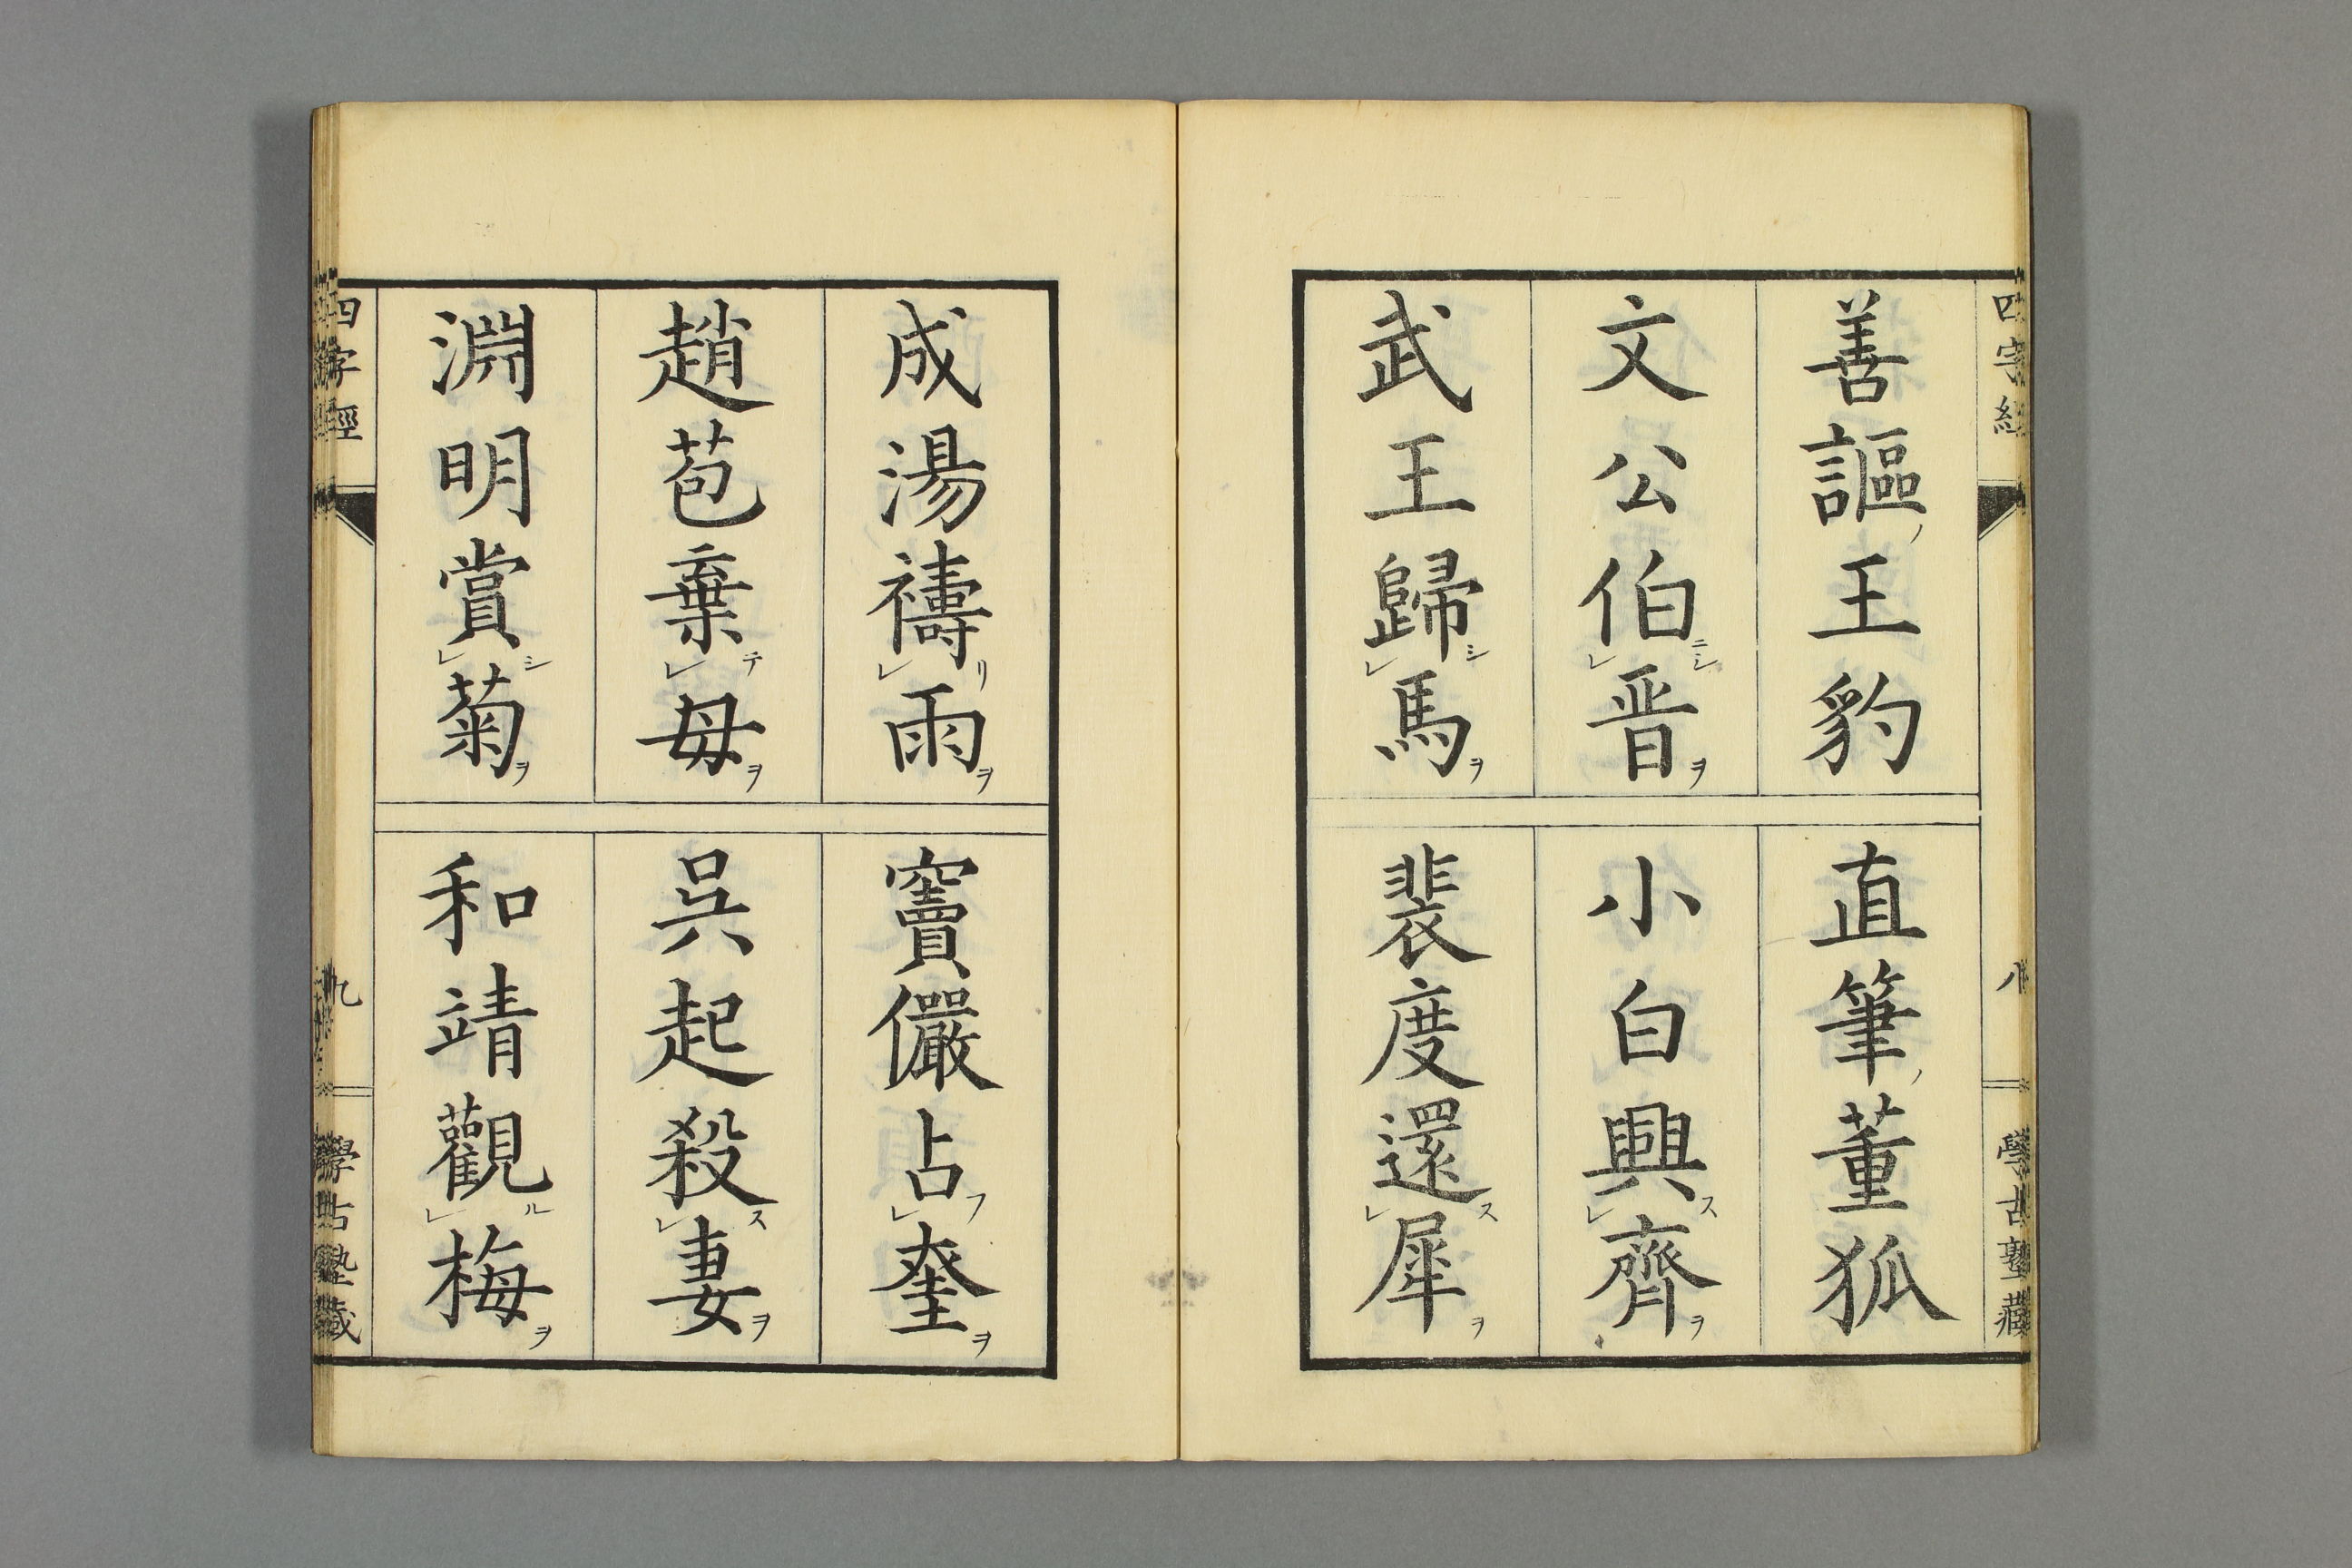 四字經
八
學古塾藏
善謳ノ王豹
直筆ノ董狐
文公伯ニシレ晋ヲ
小白興スレ齊ヲ
武王歸シレ馬ヲ
裴度還スレ犀ヲ
成湯禱リレ雨ヲ
竇儼占フレ奎ヲ
趙苞棄テレ母ヲ
呉起殺スレ妻ヲ
淵明賞シレ菊ヲ
和靖觀ルレ梅ヲ
四字經
九
學古塾藏